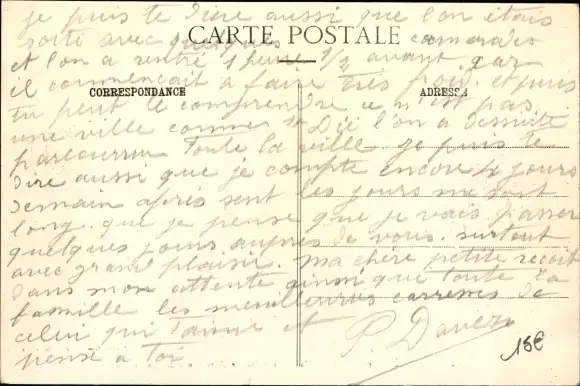 je puis te dire aussi que l'on était
sorti avec quelques camarades
CARTE POSTALE
et l'on a rentré 1 heure 1/2 avant car
il commencait a faire très froid et puis
CORRESPONDANCE
ADRESSE
tu peut le comprendre ce n'est pas
une ville comme St Dié l'on a dessuite
parcourru toute la ville je puis te
dire aussi que je compte encore 4 jours
demain après sent les jours me sont
long. que je pense que je vais passer
quelques jours auprès de vous. surtout
avec grand plaisir. ma chère petite reçoit
dans mon attente ainsi que toute la
famille les meuilleures caresses de
celui qui t'aime et
pense à toi
P. Davez
15€